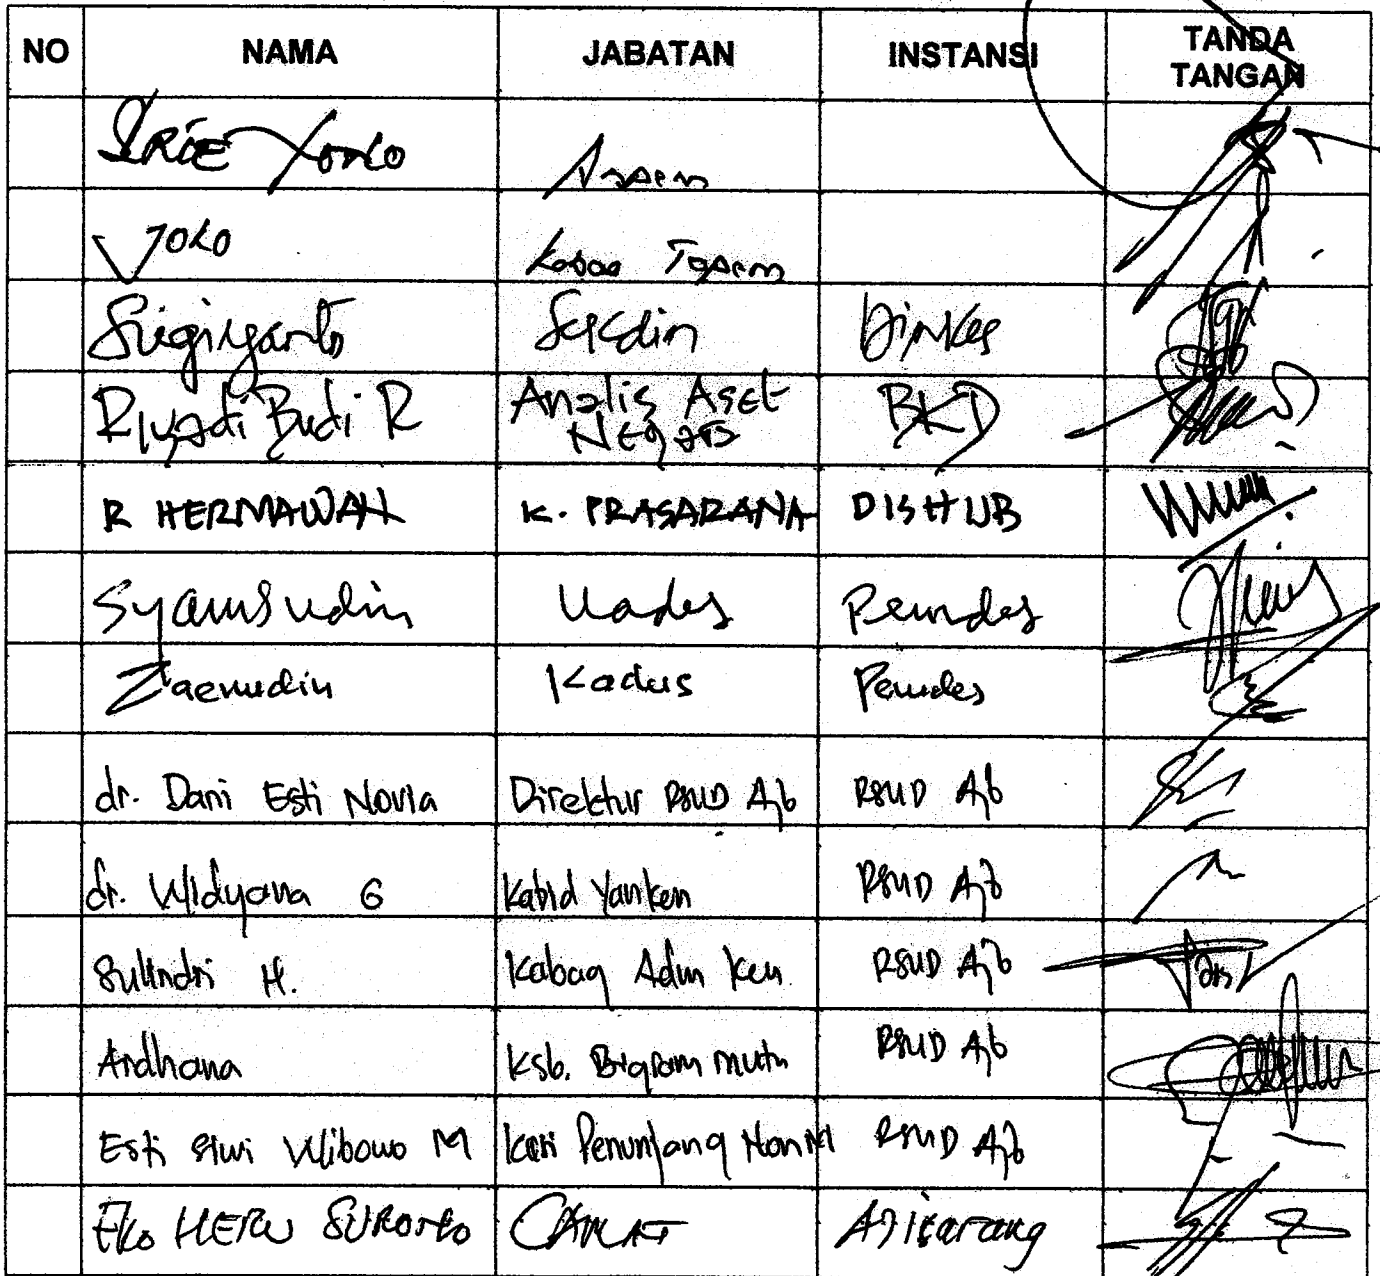 NO NAMA JABATAN INSTANSI TANDA TANGAN
JOKO
Sugiyanto Sekdin Dinkes
Riyadi Budi R Analis Aset Negara BKD
R HERMAWAN K. PRASARANA DISHUB
Syamsudin Kades Pemdes
Zaenudin Kadus Pemdes
dr. Dani Esti Novia Direktur RSUD Ajb RSUD Ajb
dr. Widyana G Kabid Yankep RSUD Ajb
Sulindri H. Kabag Adm Keu RSUD Ajb
Ardhana Ksb. Program mutu RSUD Ajb
Esti siwi Wibowo M Kasi Penunjang Non M RSUD Ajb
Eko HERU SUROSO CAMAT Ajibarang